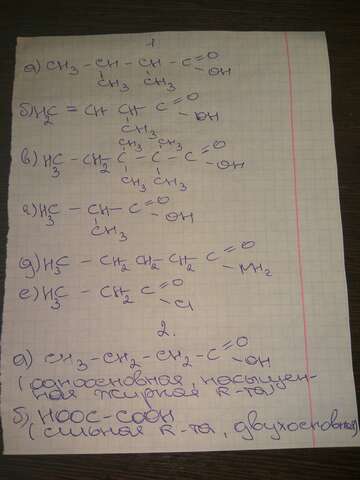 1
а) CH3 - CH - CH - C = O - OH
CH3 CH3
б) H2C = CH CH - C = O - OH
CH3
CH3 CH3
в) H3C - CH2 - C - C - C = O - OH
CH3 CH3
г) H3C - CH - C = O - OH
CH3
д) H3C - CH2 CH2 CH2 C = O - NH2
е) H3C - CH2 C = O - Cl
2.
а) CH3-CH2-CH2-C = O - OH
(одноосновная, насыщен-
ная жирная к-та)
б) HOOC-COOH
(сильная к-та, двухосновная)